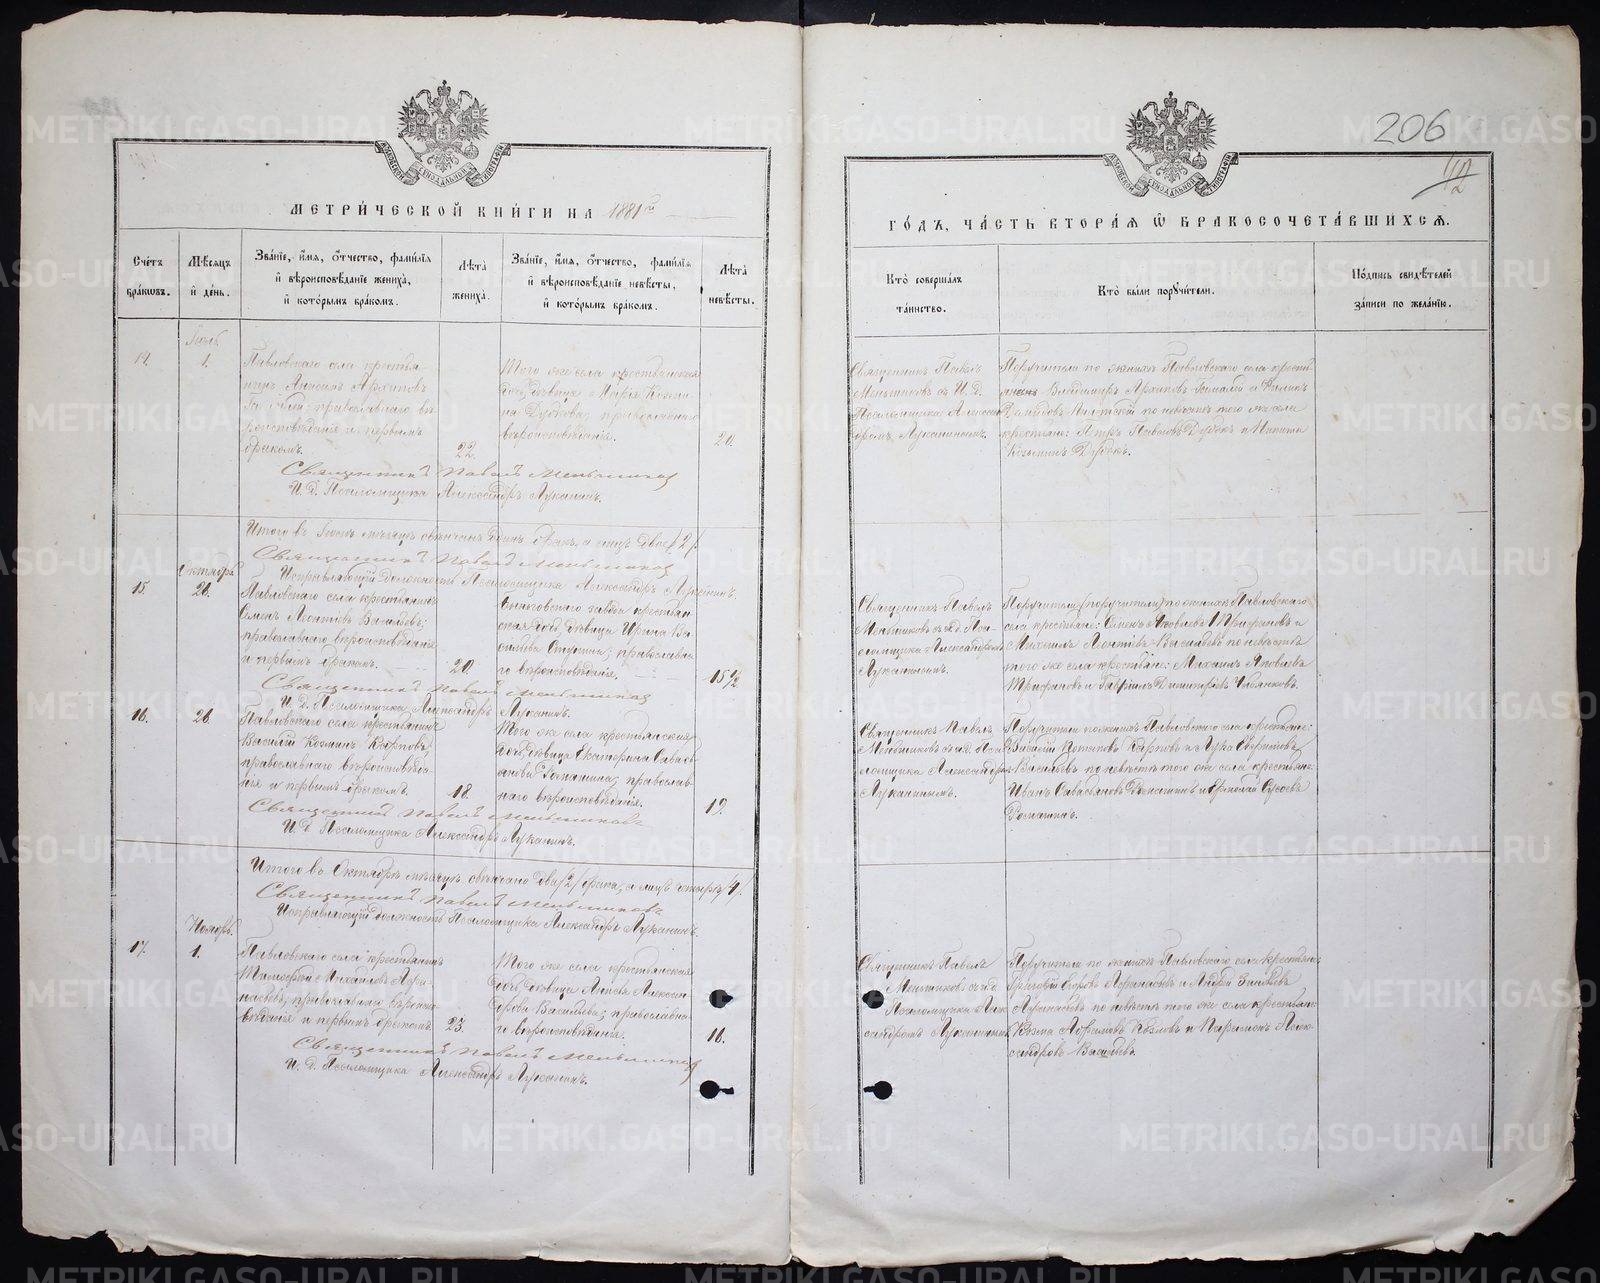 206
МОСКОВСКОЙ СѶНОДАЛЬНОЙ ТИПОГРАФІИ
МЕТРИ́ЧЕСКОЙ КНИ́ГИ НА 1881й
ГО́ДЪ, ЧА́СТЬ ВТОРА́Я Ѿ БРАКОСОЧЕТА́ВШИХСЯ.
Счетъ браковъ.
Мѣсяцъ и день.
Званіе, имя, отчество, фамилія и вѣроисповѣданіе жениха, и которымъ бракомъ.
Лѣта жениха.
Званіе, имя, отчество, фамилія и вѣроисповѣданіе невѣсты, и которымъ бракомъ.
Лѣта невѣсты.
Кто совершалъ таинство.
Кто были поручители.
Подпись свидѣтелей записи по желанію.
14. 1.
Павловскаго села крестья-
нинъ Анисимъ Архиповъ
православнаго вѣ-
роисповѣданія и первымъ
бракомъ.
22.
Того же села крестьянская
дочь, дѣвица Марія Козми-
на православнаго
вѣроисповѣданія.
20.
Священникъ Павелъ
Меньшиковъ съ И. Д.
Псаломщика Алексан-
дромъ Луканинымъ.
Поручители по женихѣ Павловскаго села крестья-
Владимиръ Архиповъ и Филипъ
по невѣстѣ того же села
крестьяне: Петръ Павловъ и Никита
Козминъ
Священникъ Павелъ Меньшиковъ
И. Д. Псаломщика Александръ Луканинъ.
Итого въ мѣсяцѣ вѣнчанъ одинъ бракъ, а лицъ двое /2/.
Священникъ Павелъ Меньшиковъ
Исправляющій должность Псаломщика Александръ Луканинъ.
Октябрь
15. 26.
Павловскаго села крестьянинъ
Леонтіевъ Васильевъ;
православнаго вѣроисповѣданія
и первымъ бракомъ.
20.
завода крестьян-
ская дочь, дѣвица Ирина Ва-
сильева православна-
го вѣроисповѣданія.
15 ½
Священникъ Павелъ
Меньшиковъ съ и.д. Пса-
ломщика Александромъ
Луканинымъ.
Поручители /поручители/ по женихѣ Павловскаго
села крестьяне: Семенъ Яковлевъ Трифановъ и
Михаилъ Леонтіевъ Васильевъ по невѣстѣ
того же села крестьяне: Михаилъ Яковлевъ
Трифановъ и Гавріилъ Димитріевъ
Священникъ Павелъ Меньшиковъ
И. Д. Псаломщика Александръ Луканинъ.
16. 26.
Павловскаго села крестьянинъ
Василій Козминъ Карповъ,
православнаго вѣроисповѣда-
нія и первымъ бракомъ.
18.
Того же села крестьянская
дочь, дѣвица Екатерина Савась-
янова православ-
наго вѣроисповѣданія.
19.
Священникъ Павелъ
Меньшиковъ съ и.д. Пса-
ломщика Александромъ
Луканинымъ.
Поручители по женихѣ Павловскаго села крестьяне:
Василій Потаповъ Карповъ и Лука
Васильевъ по невѣстѣ того же села крестьяне:
Иванъ Савасьяновъ и Ермолай Сысоевъ
Священникъ Павелъ Меньшиковъ
И. Д. Псаломщика Александръ Луканинъ.
Итого въ Октябрѣ мѣсяцѣ вѣнчано два /2/ брака, а лицъ четыре /4/.
Священникъ Павелъ Меньшиковъ
Исправляющій должность Псаломщика Александръ Луканинъ.
Ноябрь
17. 1.
Павловскаго села крестьянинъ
Тимофей Михайловъ Афа-
насьевъ, православнаго вѣроиспо-
вѣданія и первымъ бракомъ
23.
Того же села крестьянская
дочь, дѣвица Алексан-
дрова Васильева; православна-
го вѣроисповѣданія.
18.
Священникъ Павелъ
Меньшиковъ съ и.д.
Псаломщика Алек-
сандромъ Луканинымъ
Поручители по женихѣ Павловскаго села крестьяне
Григорій Егоровъ Афанасьевъ и Андрей
Афанасьевъ по невѣстѣ того же села крестьяне
Козма Козловъ и Парамонъ Алек-
сандровъ Васильевъ.
Священникъ Павелъ Меньшиковъ
И. Д. Псаломщика Александръ Луканинъ.
METRIKI.GASO-URAL.RU